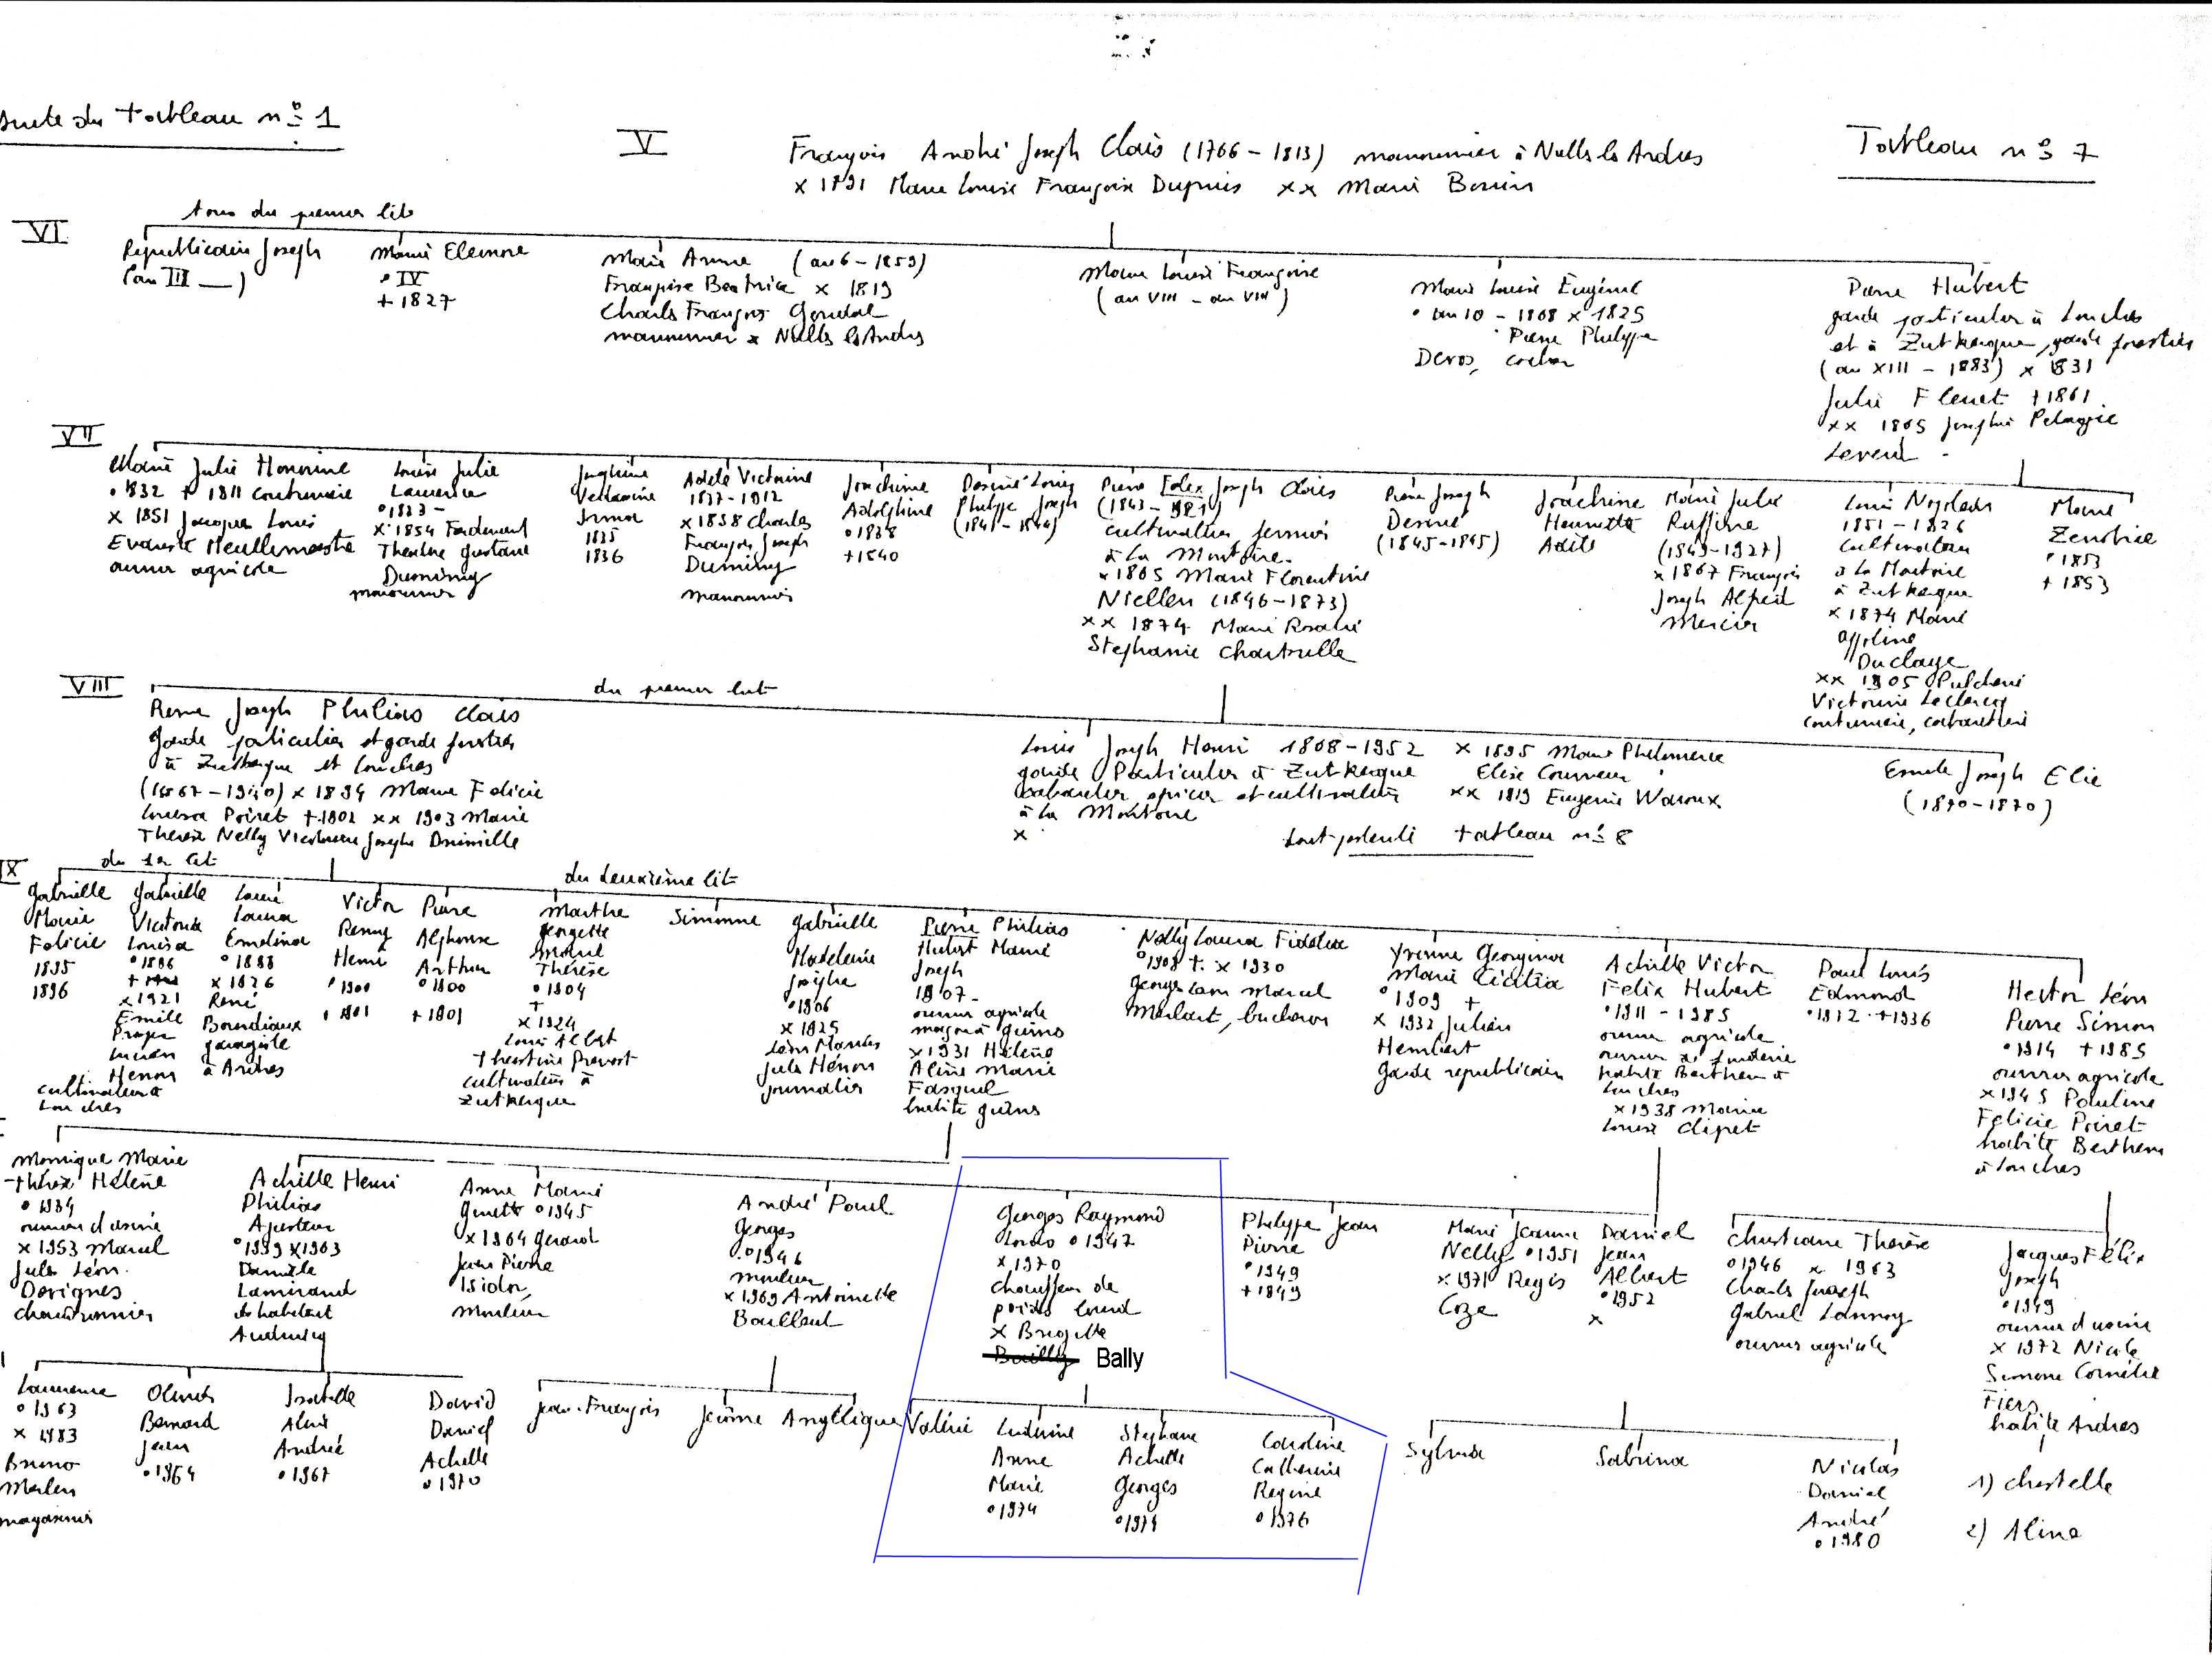 Suite du tableau n° 1
V
François André Joseph Clais (1766 - 1813) manouvrier à Nielles les Ardres
x 1791 Marie Louise Françoise Dupuis xx Marie Bonin
Tableau n° 7
VI
tous du premier lit
Republicain Joseph
(an III — )
Marie Eleonore
° IV
+ 1827
Marie Anne (an 6 - 1859)
Françoise Beatrice x 1819
Charles François
manouvrier x Nielles les Ardres
Marie Louise Françoise
(an VIII - an VIII)
Marie Louise Eugénie
° an 10 - 1808 x 1825
Pierre Philippe
Devos,
Pierre Hubert
garde particulier à Louches
et à Zutkerque, garde forestier
(an XIII - 1883) x 1831
Julie Flouet + 1861
xx 1865 Josephine Pelagie
Leveul -
VII
Marie Julie Honorine
° 1832 + 1811 couturiere
x 1851 Jacques Louis
Evariste Meullemestre
ouvrier agricole
Louise Julie
Laurence
° 1833 -
x 1854 Ferdinand
Theodore Gustave
Duminy
manouvrier
Josephine
Irma
1835
1836
Adele Victorine
1837 - 1912
x 1858 Charles
François Joseph
Duminy
manouvrier
Joachime
Adolphine
° 1838
+ 1840
Desiré Louis
Philippe Joseph
(1841 - 1844)
Pierre Felix Joseph Clais
cultivateur fermier
à la Montoire.
x 1865 Marie Florentine
Niellen (1846 - 1873)
xx 1874 Marie Rosalie
Stephanie Chartrelle
Pierre Joseph
Desiré
(1845 - 1845)
Joachine
Henriette
Adèle
Marie Julie
Ruffine
(1849 - 1927)
x 1867 François
Joseph Alfred
Mercier
Louis Nicolas
1851 - 1926
cultivateur
à la Montoire
à Zutkerque
x 1874 Marie
Appoline
Duclaye
xx 1905 Pulcherie
Victorine Leclercq
couturiere, cabaretiere
Marie
Zenobie
° 1853
+ 1853
VIII
du premier lit
Pierre Joseph Philias Clais
garde particulier et garde forestier
à Zutkerque et Louches
(1867 - 1940) x 1894 Marie Felicie
Louisa Poiret + 1902 xx 1903 Marie
Therese Nelly Victorine Josephe
Louis Joseph Henri 1868 - 1952
garde Particulier à Zutkerque
cabaretier epicier et cultivateur
à la Montoire
x
x 1895 Marie Philomene
Elise Couvreur
xx 1919 Eugenie Waroux
sont postérité tableau n° 8
Emile Joseph Elie
(1870 - 1870)
IX
du 1er lit
du deuxième lit
Gabrielle
Marie
Felicie
1895
1896
Gabrielle
Victoria
Louisa
° 1896
x 1921
Emile
Prosper
Lucien
Henon
cultivateur à
Louches
Laure
Emelina
° 1898
x 1926
René
Bourdiaux
garagiste
à Ardres
Victor
Remy
Henri
° 1900
+ 1901
Pierre
Alphonse
Arthur
° 1900
+ 1901
Marthe
Georgette
Thérèse
° 1904
+
x 1924
Louis Albert
Theostine Prevost
cultivateur à
Zutkerque
Simonne
Gabrielle
Madeleine
Josephe
° 1906
x 1925
Jule Hénon
journalier
Pierre Philias
Hubert Marie
Joseph
1907 -
ouvrier agricole
maçon à Guines
x 1931 Hélène
Aline Marie
Fasquel
habite Guines
Nelly Laura Fidelia
° 1908 +. x 1930
Georges Leon Marcel
Merlart, bucheron
Yvonne Georgina
Marie Cécilia
° 1909 +
x 1932 Julien
Hembert
garde republicain
Achille Victor
Felix Hubert
° 1911 - 1985
ouvrier agricole
habite Berthem à
Louches
x 1938 Marie
Louise Clipet
Paul Louis
Edmond
° 1912 + 1936
Hector Léon
Pierre Simon
° 1914 + 1985
ouvrier agricole
x 1945 Pauline
Felicie Poiret
habite Berthem
à Louches
Monique Marie
Thérèse Hélène
° 1934
ouvrier d'usine
x 1953 Marcel
Jules Léon
Devignes
chaudronnier
Achille Henri
Philias
Ajusteur
° 1939 x 1963
Danièle
Lamirand
Audruicq
Anne Marie
Ginette ° 1945
x 1964 Gerard
Jean Pierre
Isidor,
mouleur
André Paul
Georges
° 1946
mouleur
x 1969 Antoinette
Bailleul
Georges Raymond
Louis ° 1947
x 1970
chauffeur de
poids lourd
x Brigitte
Bailly Bally
Philippe Jean
Pierre
° 1949
+ 1949
Marie Jeanne
Nelly ° 1951
x 1971 Regis
Coze
Daniel
Jean
Albert
° 1952
x
Christiane Thérèse
° 1946 x 1963
Charles Joseph
Gabriel Lannoy
ouvrier agricole
Jacques Félix
Joseph
° 1949
ouvrier d'usine
x 1972 Nicole
Simone Cornélie
Fiers,
habite Ardres
1) Christelle
2) Aline
Laurence
° 1963
x 1983
Bruno
Merlen
magasinier
Olivier
Bernard
Jean
° 1964
Isabelle
Alice
Andrée
° 1967
David
Daniel
Achille
° 1970
Jean-François
Jérôme
Angélique
Valérie
Ludivine
Anne
Marie
° 1974
Stephane
Achille
Georges
° 1974
Caroline
Catherine
Regine
° 1976
Sylvia
Sabrina
Nicolas
Daniel
André
° 1980